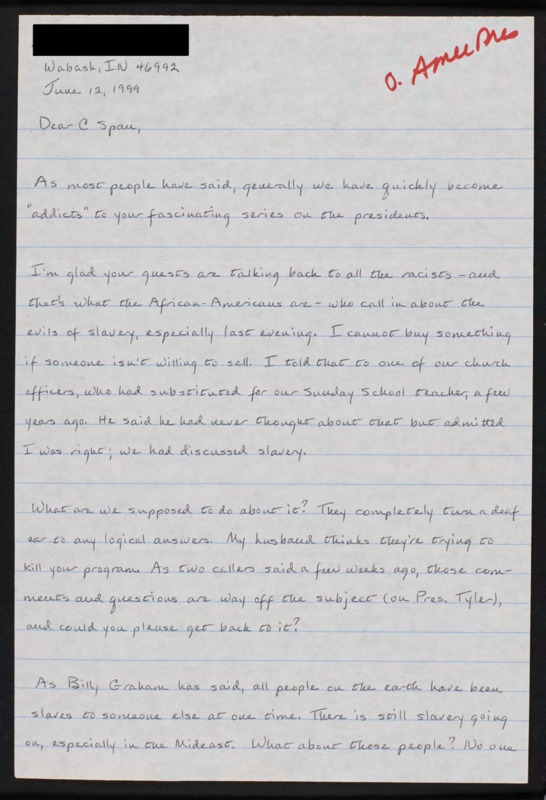 O. Amer Pres
Wabash, IN 46992
June 12, 1999
Dear C Span,
As most people have said, generally we have quickly become
"addicts" to your fascinating series on the presidents.
I'm glad your guests are talking back to all the racists - and
that's what the African-Americans are - who call in about the
evils of slavery, especially last evening. I cannot buy something
if someone isn't willing to sell. I told that to one of our church
officers, who had substituted for our Sunday School teacher, a few
years ago. He said he had never thought about that but admitted
I was right; we had discussed slavery.
What are we supposed to do about it? They completely turn a deaf
ear to any logical answers. My husband thinks they're trying to
kill your program. As two callers said a few weeks ago, those com-
ments and questions are way off the subject (on Pres. Tyler),
and could you please get back to it?
As Billy Graham has said, all people on the earth have been
slaves to someone else at one time. There is still slavery going
on, especially in the Mideast. What about those people? No one